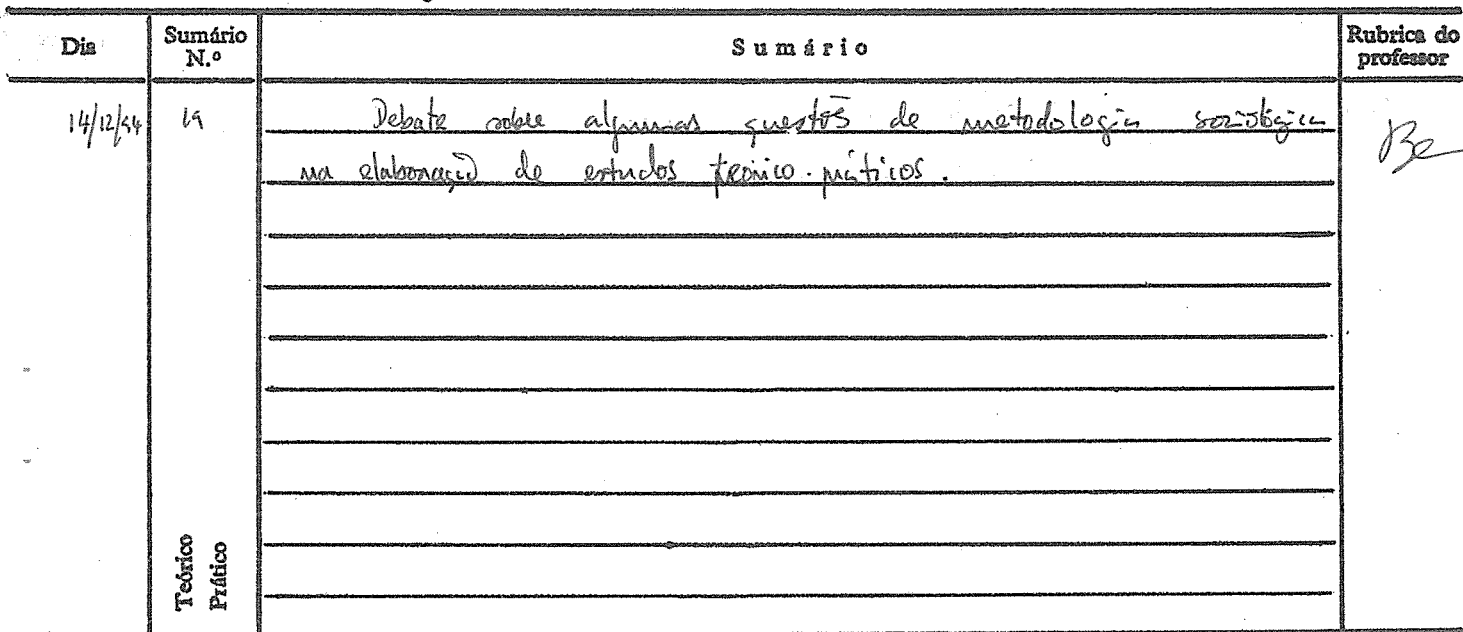 Dia
Sumário N.º
Sumário
Rubrica do professor
14/12/94
19
Debate sobre algumas questões de metodologia sociológica
na elaboração de estudos teórico-práticos.
Teórico
Prático